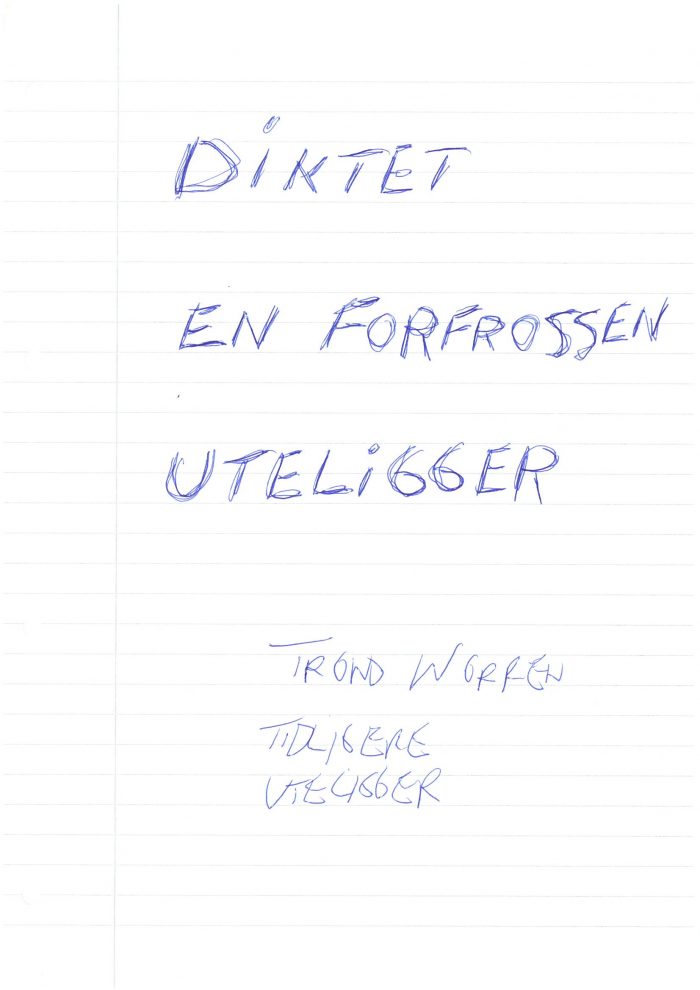 DIKTET
EN FORFROSSEN
UTELIGGER
TROND WORREN
TIDLIGERE
UTELIGGER